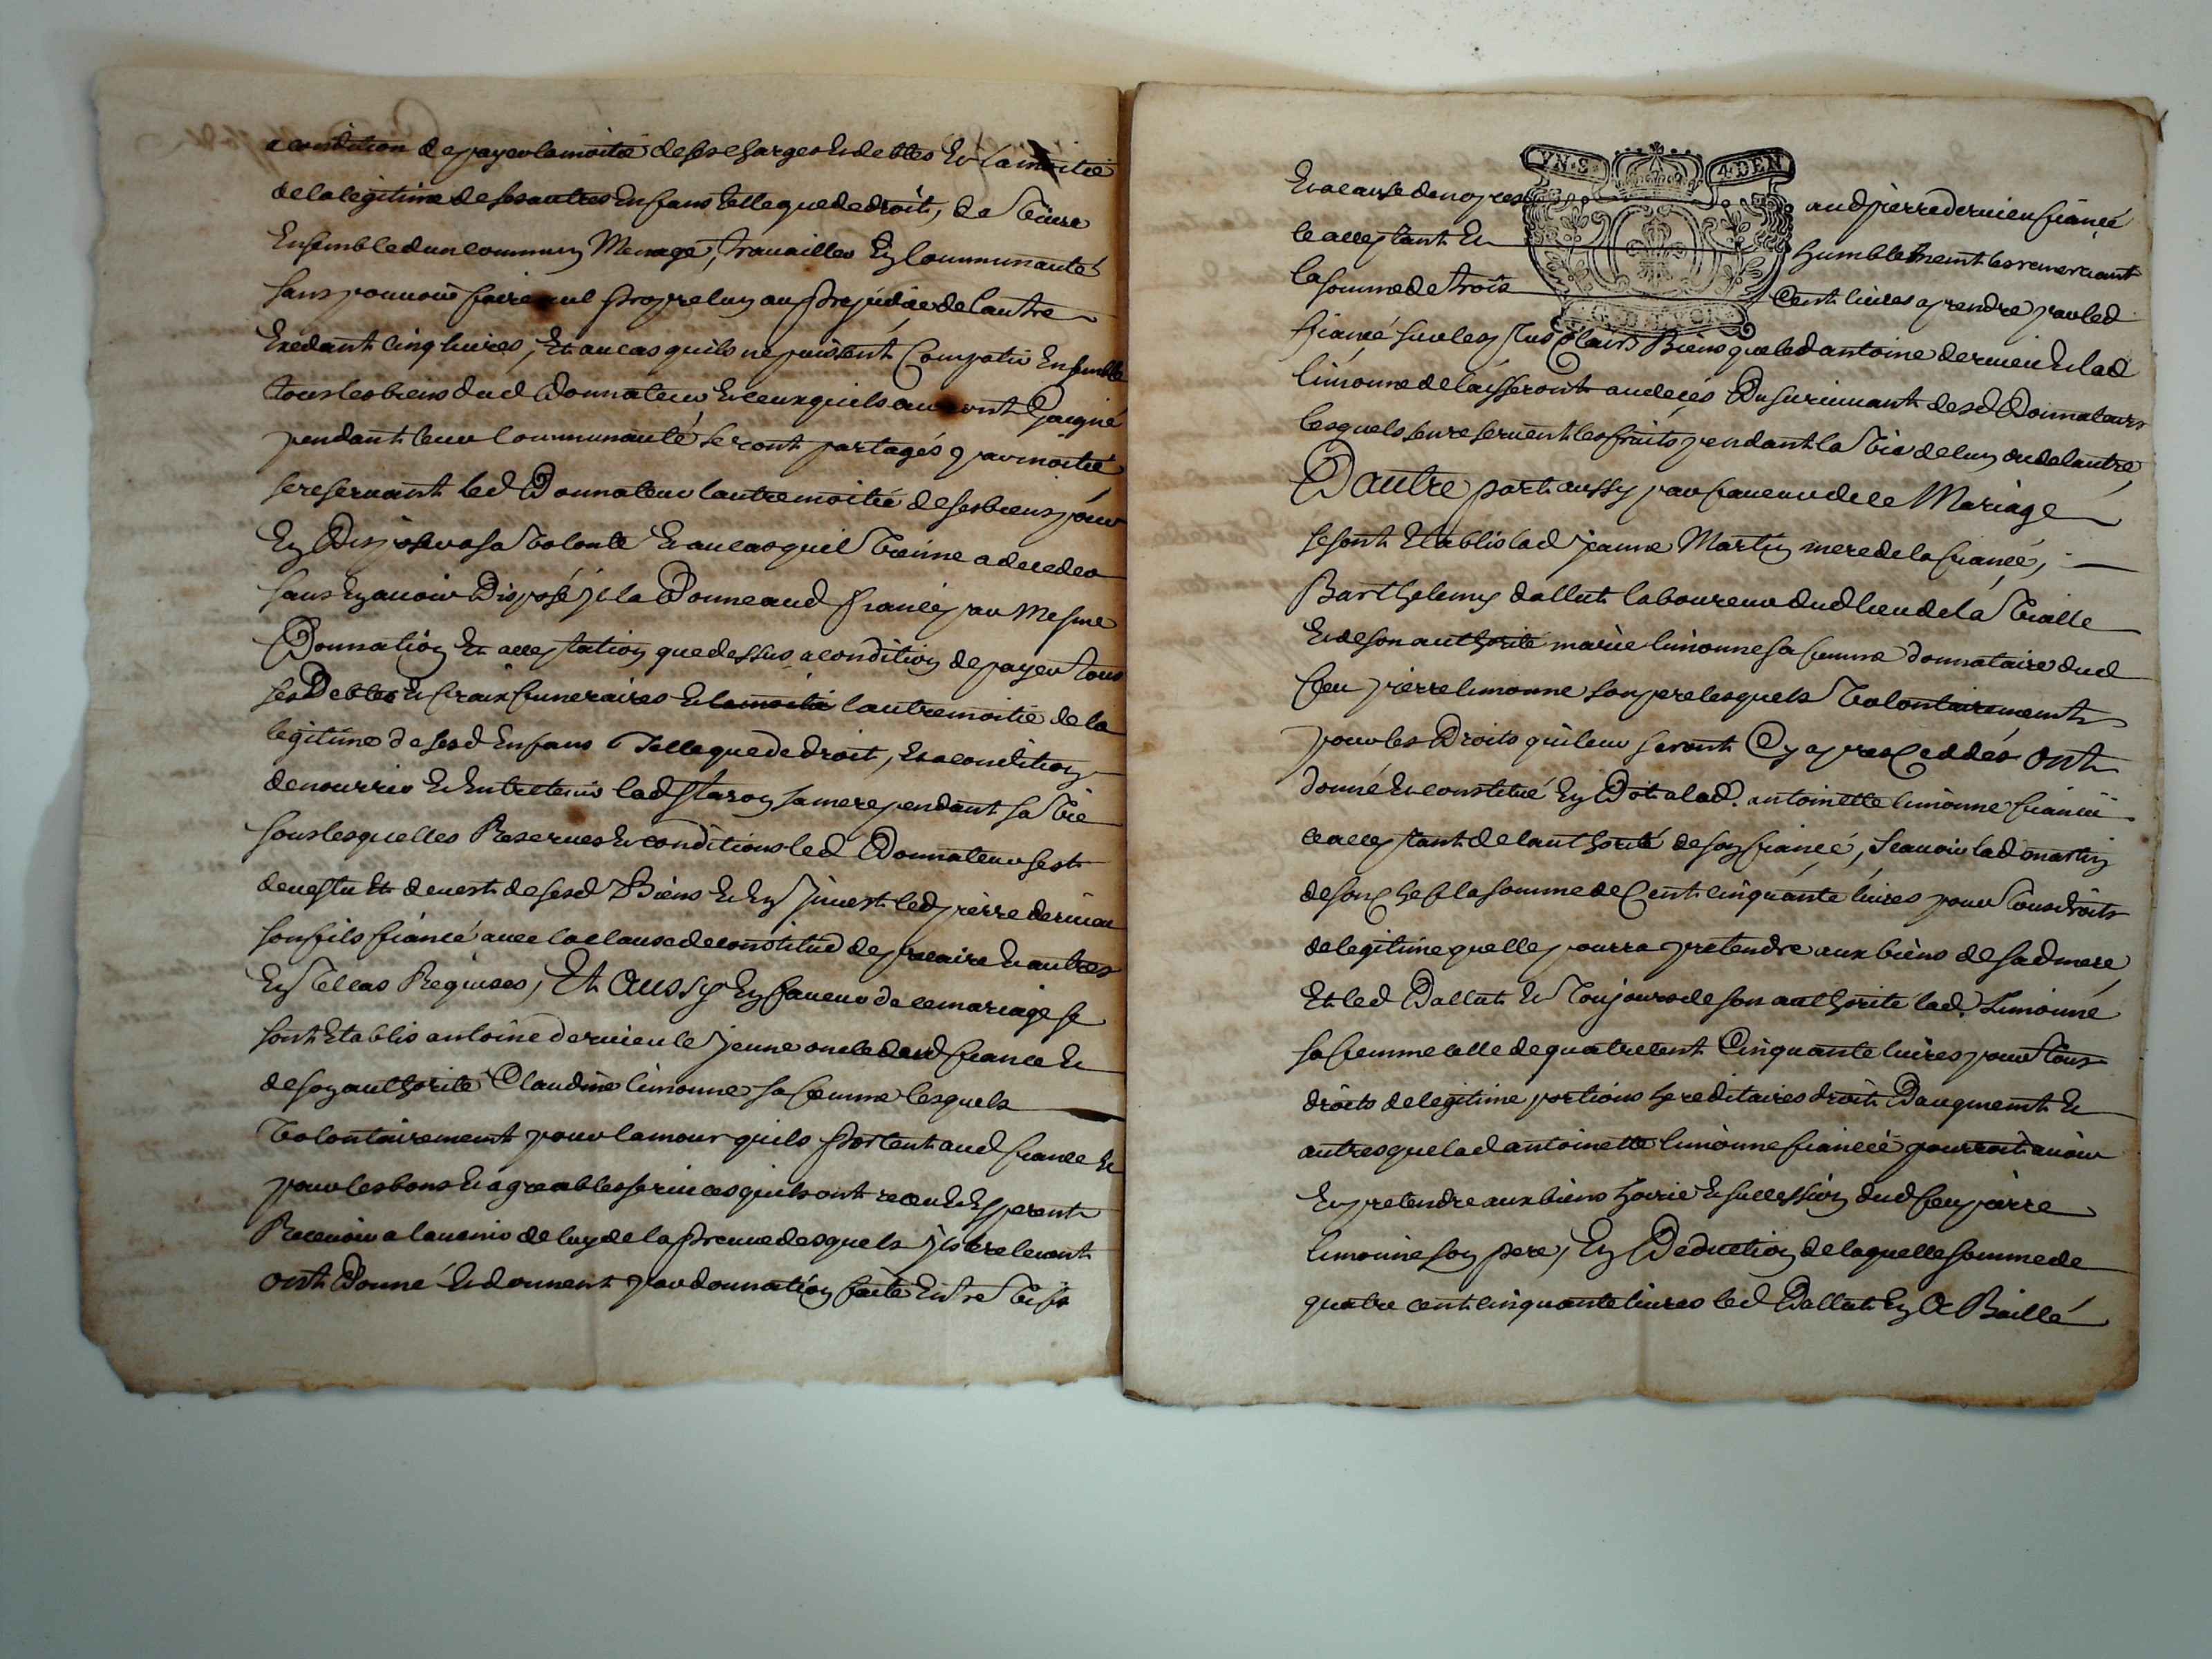 a condition de payer la moitié de ses charges et debtes et la moitié
de la legitime de ses autres enfans telle que de droit, de vivre
Ensemble dun commun Menage, travailler En Communauté
sans pouvoir faire nul propre lun au prejudice de lautre
Exedant cinq livres, Et au cas quils ne puissent Compatir Ensemble
tous les biens dud Donnateur et ceux quils auront Gaigné
pendant leur Communauté seront partagés par moitié
se reservant led Donnateur lautre moitié de ses biens pour
En Disposer a sa volonté et au cas quil vienne a deceder
sans En avoir Disposé jl la Donne aud fiancé par Mesme
Donnation Et acceptation que dessus a condition de payer tous
ses Debtes et fraix funeraires et la moitié lautre moitié de la
legitime de sesd Enfans Telle que de droit, et a condition
de nourrir et Entretenir lad staron sa mere pendant sa vie
sous lesquelles Reserves et conditions led Donnateur sest
devestu Et devest de sesd Biens et En jnvest led pierre dervieu
son fils fiancé avec la clause de constitut de precaire et autres
En tel cas Requises, Et Aussy En faveur de ce mariage se
sont Etablis antoine dervieu le jeune oncle dud fiancé et
de son authorité Claudine limonne sa femme lesquels
volontairement pour lamour quils portent aud fiancé et
pour les bons et agreables services quils ont receu et Esperent
Recevoir a lavenir de luy de la preuve desquels jls le relevent
ont Donné et donnent par donnation faite Entre vifs
VN·S· 4·DEN
G·D·LYON
Et a cause de nopces aud pierre dervieu fiancé
ce acceptant et humblement les remerciant
la somme de trois Cent livres a prendre par led
fiancé sur les plus clairs Biens que led antoine dervieu et lad
limonne delaisseront au deces Du survivant desd Donnateurs
lesquels sen reservent les fruits pendant la vie de lun ou de lautre,
D'autre part aussy par faveur de ce Mariage
se sont Etablis lad jeanne Martin mere de la fiancée,
Barthelemy dallut laboureur dud lieu de la vialle
et de son authorité marie limonne sa femme donnataire dud
feu pierre limonne son pere lesquels volontairement
pour les Droits qui leur seront Cy apres Ceddés ont
donné et constitué En Dot a lad. antoinette limonne fiancée
ce acceptant de lauthorité de son fiancé, scavoir lad martin
de son chef la somme de Cent cinquante livres pour tous droits
de legitime quelle pourra pretendre aux biens de sad mere
Et led Dallut et Toujours de son authorité lad. Limonne
sa femme celle de quatre cent Cinquante livres pour tous
droits de legitime portions hereditaires droit Daugment et
autres que lad antoinette limonne fiancée pourroit avoir
Et pretendre aux biens hoirie et succession dud feu pierre
limonne son pere, En Deduction de laquelle somme de
quatre cent cinquante livres led Dallut En A Baillé